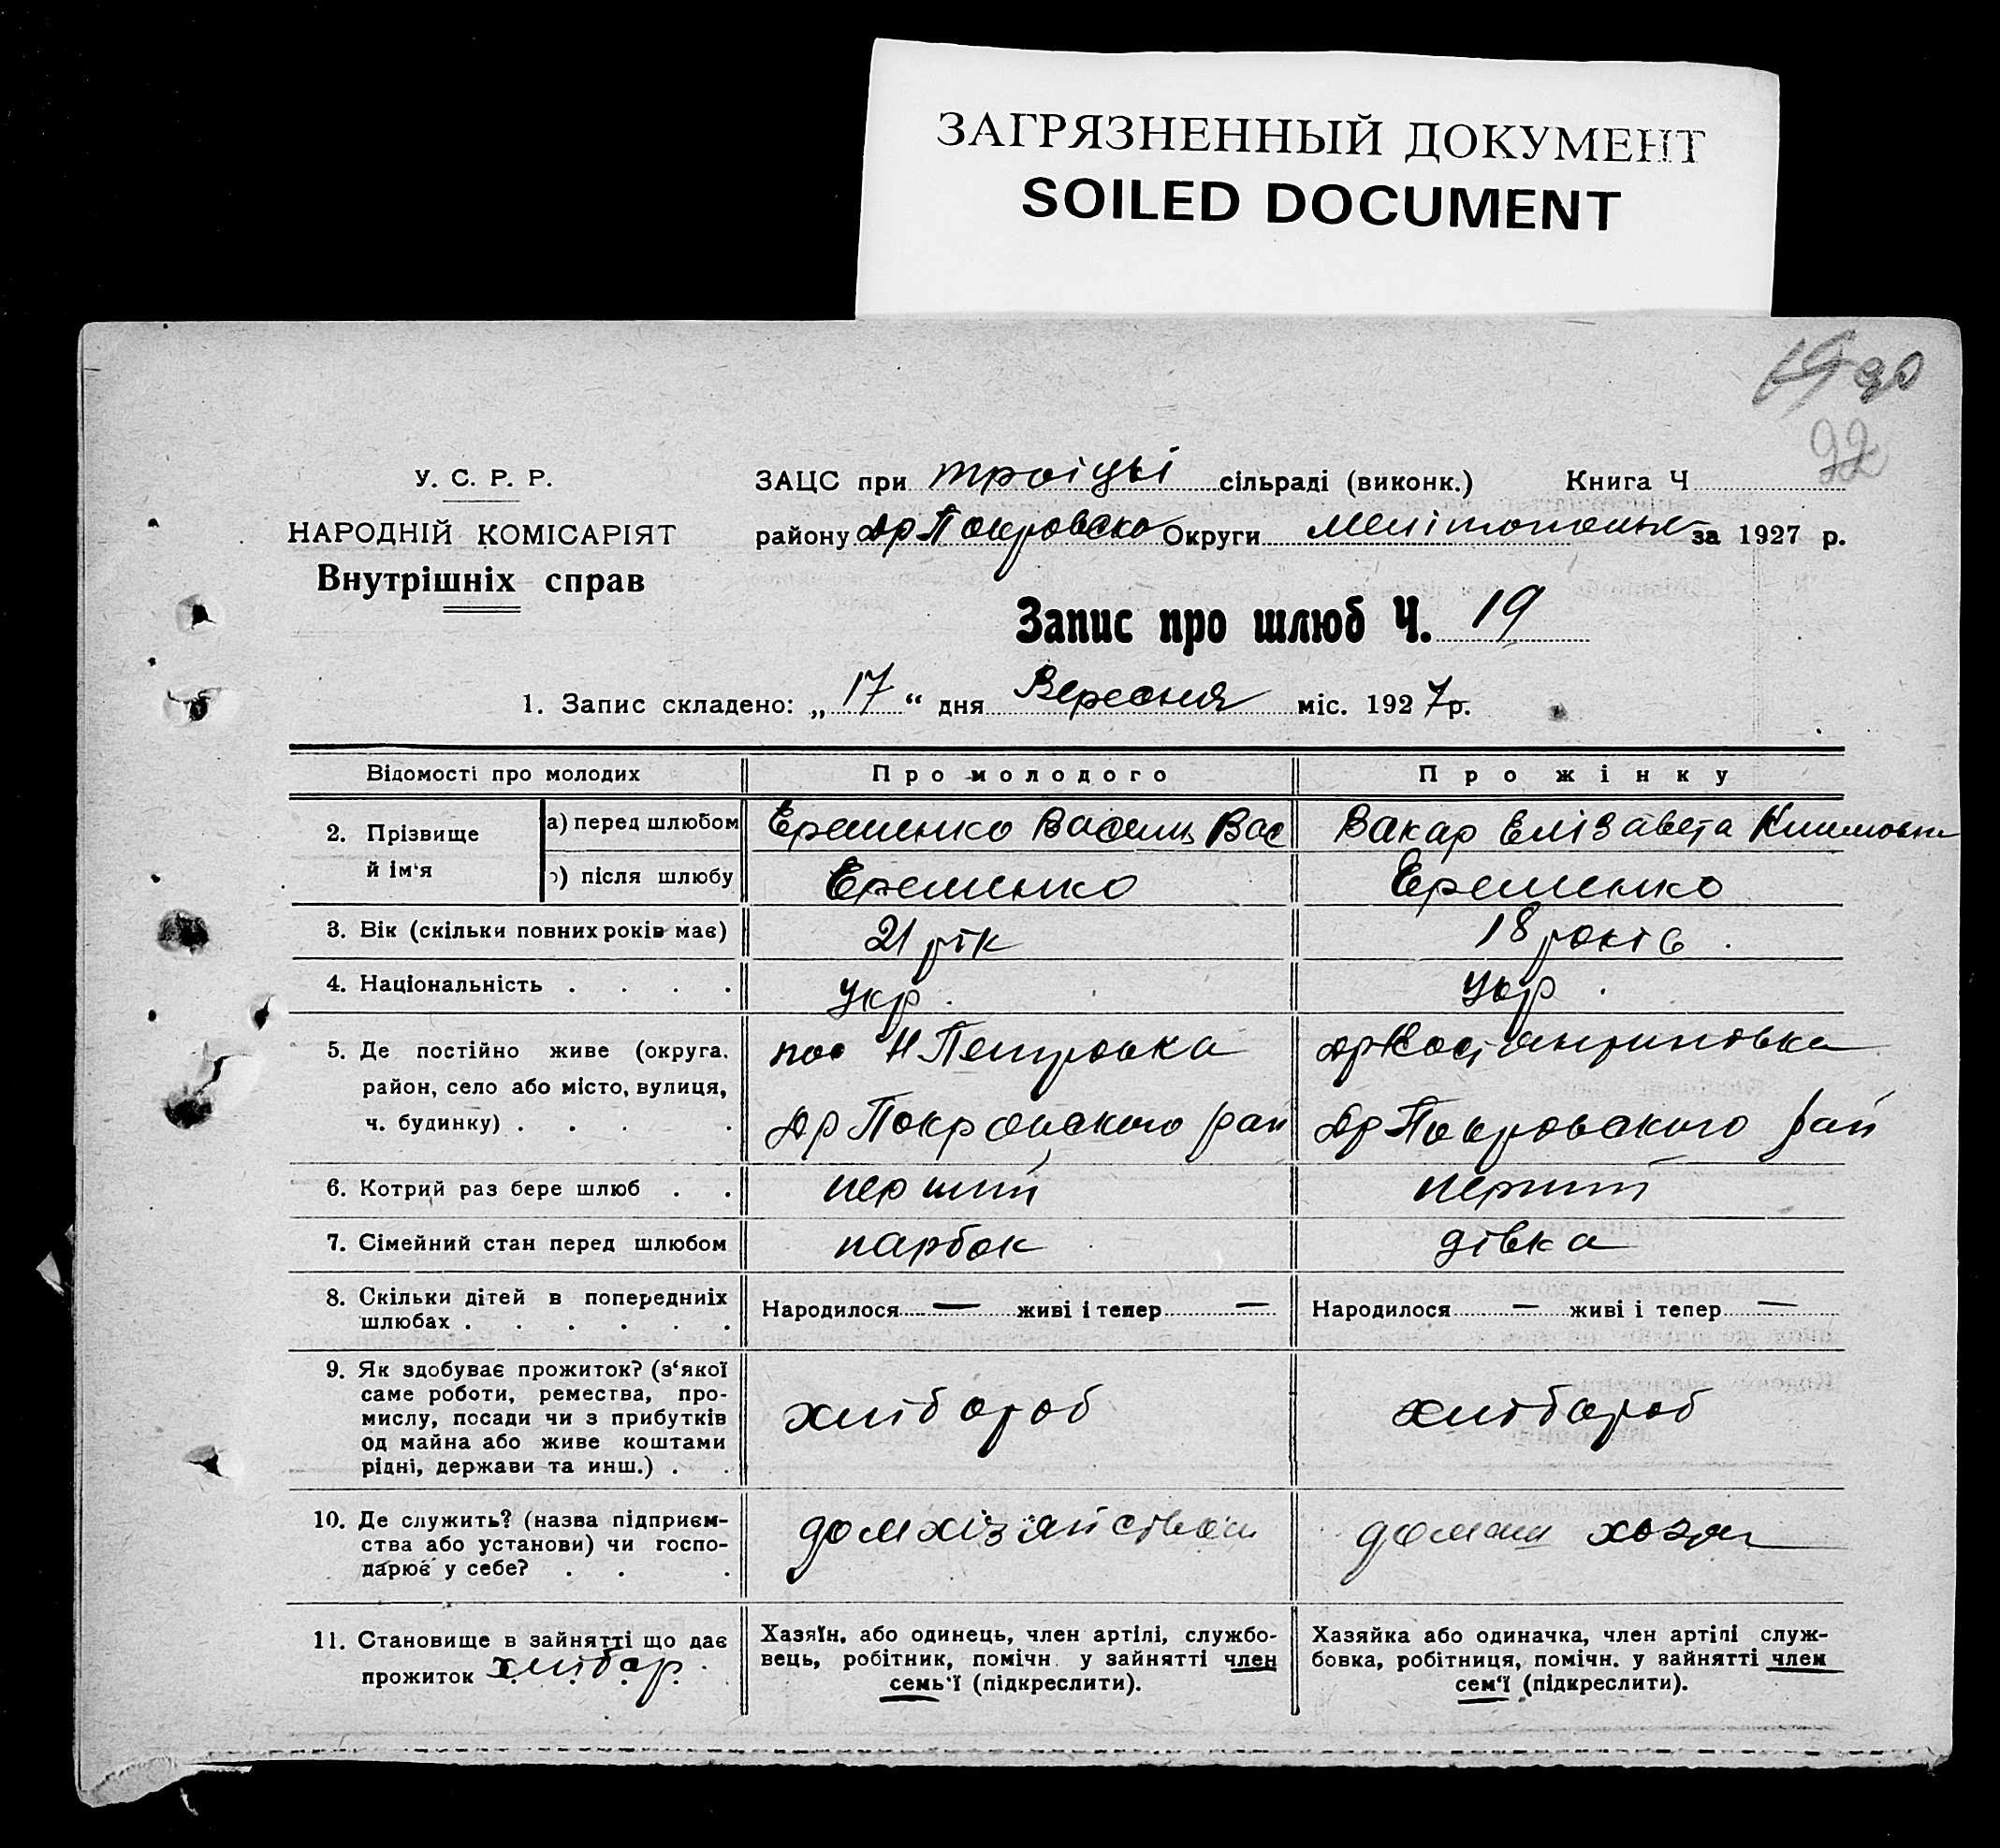 ЗАГРЯЗНЕННЫЙ ДОКУМЕНТ
SOILED DOCUMENT
90
92
У. С. Р. Р.
НАРОДНІЙ КОМІСАРІЯТ
Внутрішніх справ
ЗАЦС при Троіцькі сільраді (виконк.) Книга Ч
району Др Покровсько Округи Мелітопольск за 1927 р.
Запис про шлюб Ч. 19
1. Запис складено: „17“ дня Вересня міс. 1927 р.
Відомості про молодих Про молодого Про жінку
2. Прізвище й ім‘я
а) перед шлюбом Еременко Василь Вас Вакар Елізавета
б) після шлюбу Еременко Еременко
3. Вік (скільки повних років має) 21 рік 18 років.
4. Національність . . . . Укр. Укр.
5. Де постійно живе (округа, пос Н Петровка
район, село або місто, вулиця,
ч. будинку) . . . . Др Покровського рай Др Покровського рай
6. Котрий раз бере шлюб . . перший перший
7. Сімейний стан перед шлюбом парбок дівка
8. Скільки дітей в попередниіх
шлюбах . . . . . . Народилося — живі і тепер — Народилося — живі і тепер —
9. Як здобуває прожиток? (з‘якої
саме роботи, ремества, про-
мислу, посади чи з прибутків
од майна або живе коштами
рідні, держави та инш.) . . хлібороб хлібороб
10. Де служить? (назва підприєм-
ства або установи) чи госпо-
дарює у себе? . . .
11. Становище в зайнятті що дає
прожиток хлібор.
Хазяїн, або одинець, член артілі, службо-
вець, робітник, помічн. у зайнятті член
семь‘ї (підкреслити).
Хазяйка або одиначка, член артілі служ-
бовка, робітниця, помічн. у зайнятті член
сем‘ї (підкреслити).